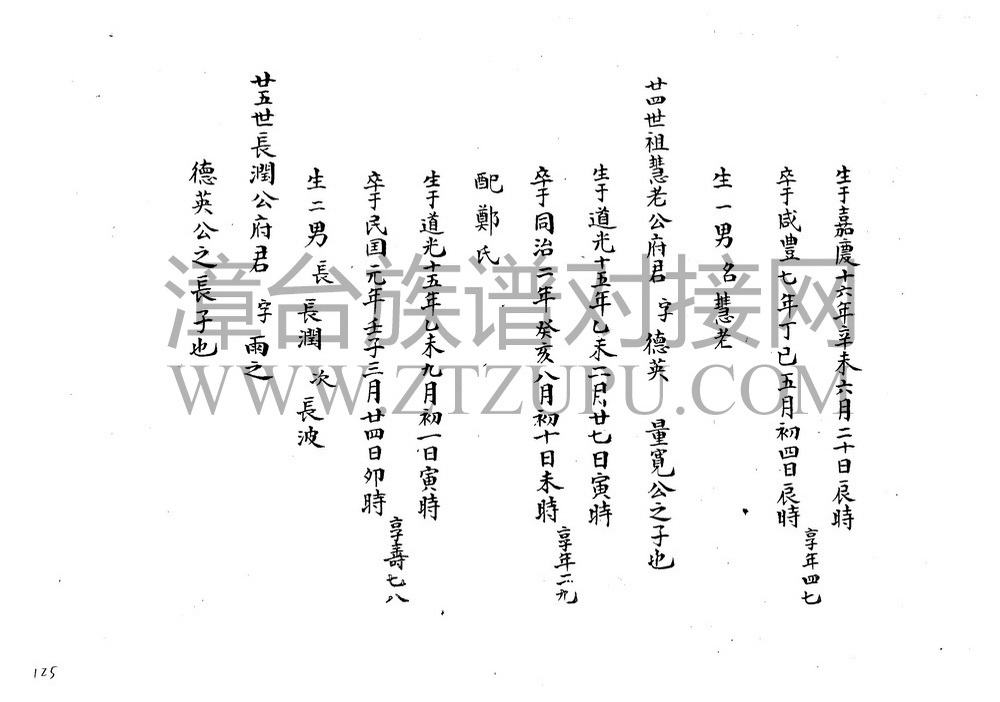 生于嘉慶十六年辛未六月二十日辰時
卒于咸豐七年丁巳五月初四日辰時 享年四七
生一男名慧老
廿四世祖慧老公府君 字德英 量寬公之子也
生于道光十五年乙未二月廿七日寅時
卒于同治二年癸亥八月初十日未時 享年二九
配鄭氏
生于道光十五年乙未九月初一日寅時
卒于民国元年壬子三月廿四日卯時 享壽七八
生二男 長 長潤 次 長波
廿五世長潤公府君 字雨之
德英公之長子也
漳台族谱对接网
WWW.ZTZUPU.COM
125